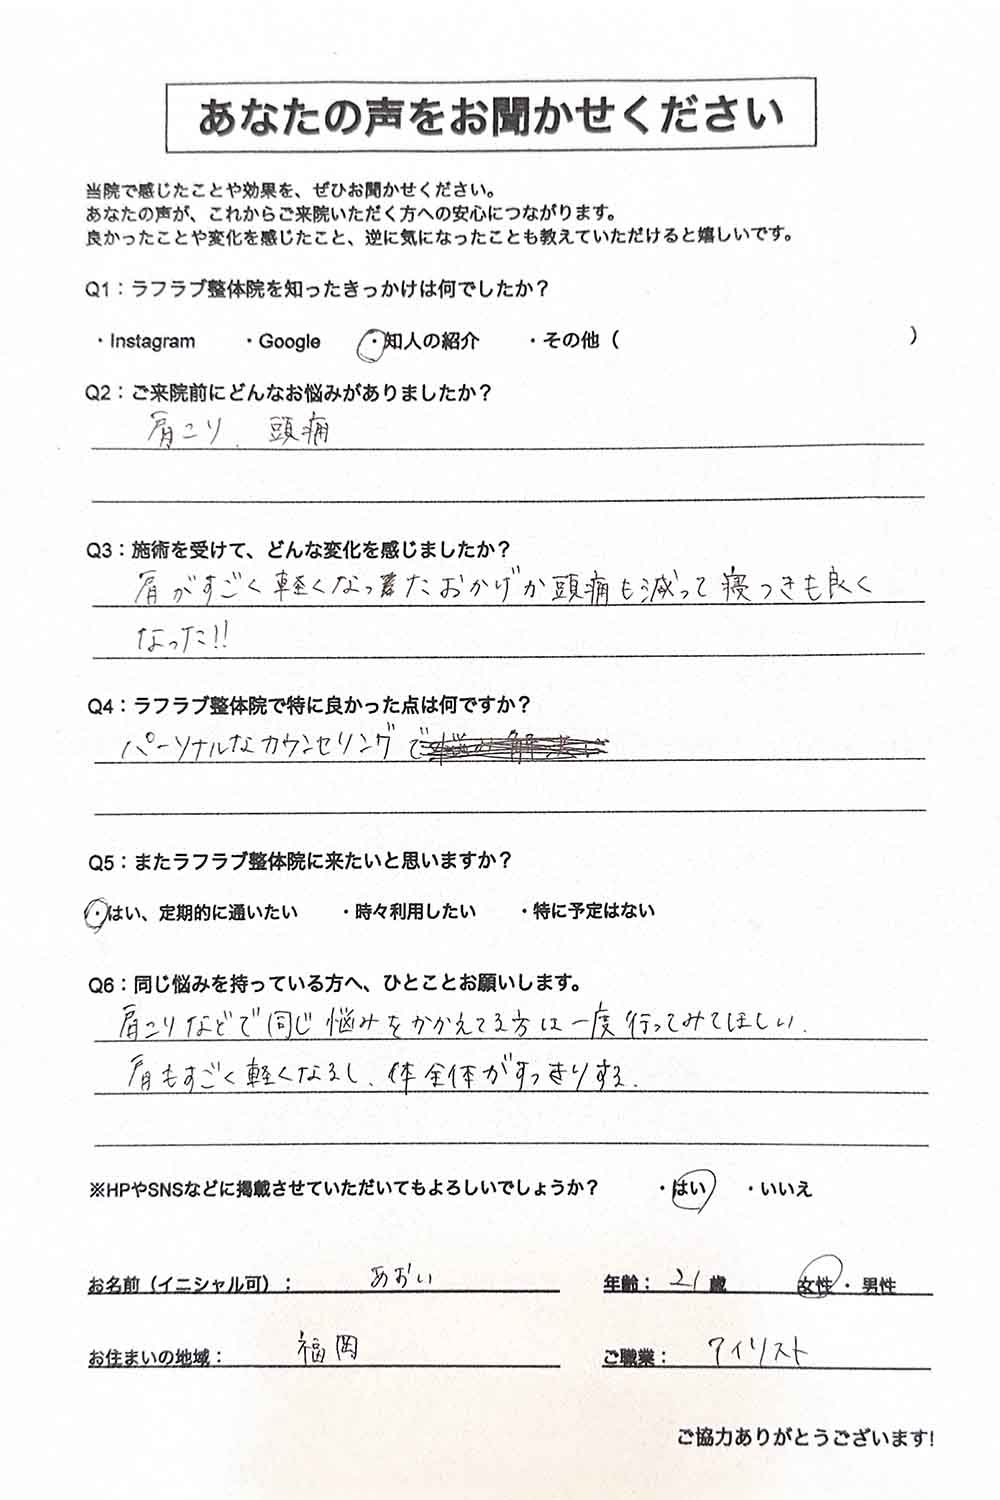 あなたの声をお聞かせください
当院で感じたことや効果を、ぜひお聞かせください。
あなたの声が、これからご来院いただく方への安心につながります。
良かったことや変化を感じたこと、逆に気になったことも教えていただけると嬉しいです。
Q1：ラフラブ整体院を知ったきっかけは何でしたか？
・Instagram ・Google ・知人の紹介 ・その他（ ）
Q2：ご来院前にどんなお悩みがありましたか？
肩こり、頭痛
Q3：施術を受けて、どんな変化を感じましたか？
肩がすごく軽くなったおかげか頭痛も減って寝つきも良く
なった!!
Q4：ラフラブ整体院で特に良かった点は何ですか？
パーソナルなカウンセリングで
Q5：またラフラブ整体院に来たいと思いますか？
・はい、定期的に通いたい ・時々利用したい ・特に予定はない
Q6：同じ悩みを持っている方へ、ひとことお願いします。
肩こりなどで同じ悩みをかかえてる方は一度行ってみてほしい.
肩もすごく軽くなるし、体全体がすっきりする.
※HPやSNSなどに掲載させていただいてもよろしいでしょうか？ ・はい ・いいえ
お名前（イニシャル可）： あおい 年齢： 21 歳 女性 ・ 男性
お住まいの地域： 福岡 ご職業： アイリスト
ご協力ありがとうございます!